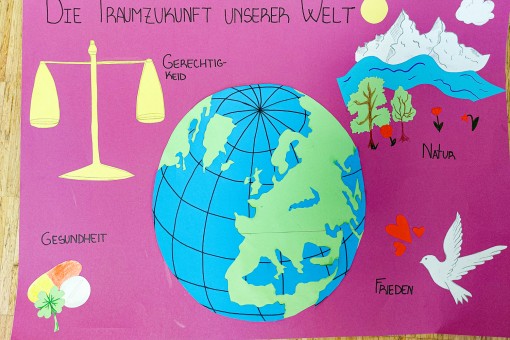 DIE TRAUMZUKUNFT UNSERER WELT
GERECHTIG-
KEID
NATUR
GESUNDHEIT
FRIEDEN